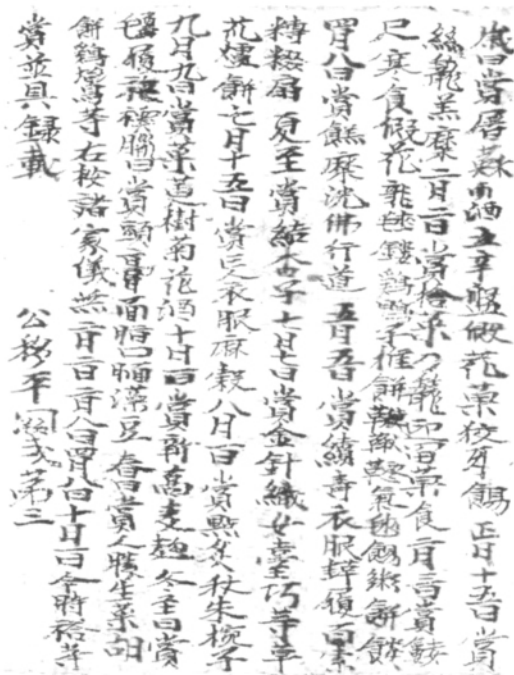 歲日賞屠蘇酒五辛盤假花菓狡牙餳正月十五日賞
絲籠羔糜二月二日賞拾菜籠迎百菜食三月三日賞鏤
尺寒食假花雞毬鏤鷄鴨子推餅鞦韆氣毬餳粥餅餤
四月八日賞糕糜洗佛行道五月五日賞續壽衣服鞋履百索
粽扇夏至賞結杏子七月七日賞金針織女臺巧等草
花爐餅七月十五日賞衣服麻穀八月一日賞點炙杖朱椀子
九月九日賞茱萸樹菊花酒十月一日賞新蒿麦麴冬至日賞
氈履袍襪臘日賞頭膏面脂口脂澡豆春日賞人勝生菜胡
餅鷄燕等右按諸家儀無二月二日二月八日四月八日十月一日今時俗等
賞並具錄載
公移平闕式第三